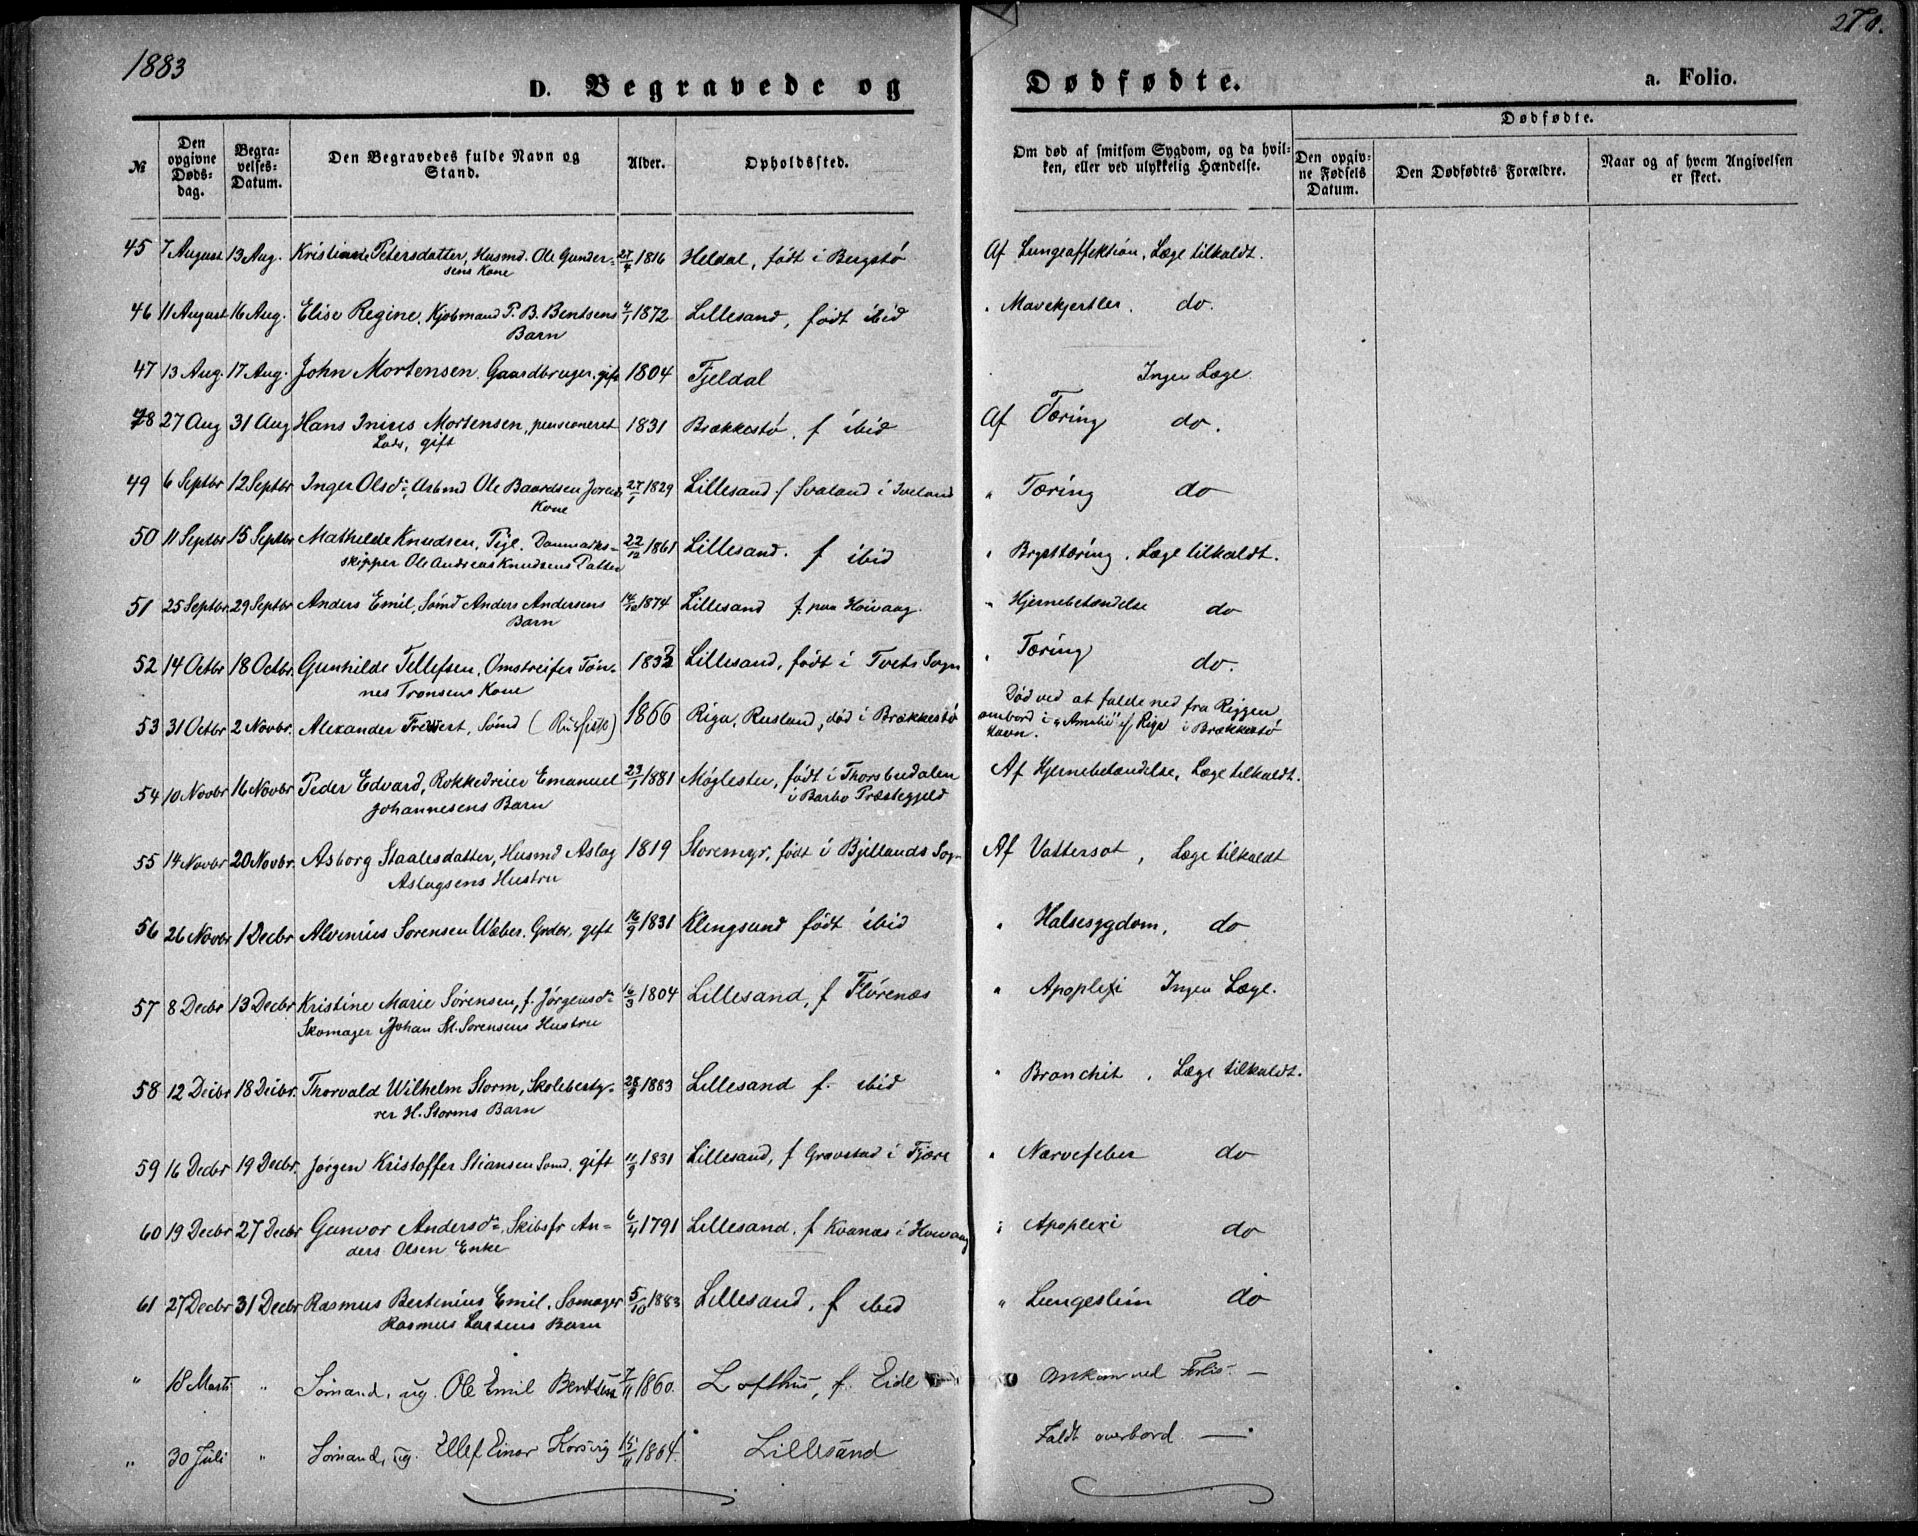 1883
270.
D. Begravede og Dødfødte.
a. Folio.
№
Den opgivne Døds-dag.
Begra-velses-Datum.
Den Begravedes fulde Navn og Stand.
Alder.
Opholdssted.
Om død af smitsom Sygdom, og da hvil-ken, eller ved ulykkelig Hændelse.
Dødfødte.
Den opgiv-ne Fødsels Datum.
Den Dødfødtes Forældre.
Naar og af hvem Angivelsen er skeet.
45 7 August 13 Aug. Kristiane Petersdatter, Husmd. Ole Gunder- 27/4 1816 Heldal, født i Bergstø Af Lungeaffektion, Læge tilkaldt.
sens Kone
46 11 August 16 Aug. Elise Regine, Kjøbmand P. B. Bentsens 4/1 1872 Lillesand, født ibid " Mavekjertler. do.
Barn
47 13 Aug. 17 Aug. John Mortensen, Gaardbruger, gift 1804 Fjeldal Ingen Læge.
48 27 Aug 31 Aug Hans Mortensen, pensioneret 1831 Brækkestø, f ibid Af Tæring do.
Lods, gift
49 6 Septbr 12 Septbr Inger Olsd:, Arbmd Ole Baardsen 27/1 1829 Lillesand f Svaland i Iveland " Tæring do
Kone
50 11 Septbr 15 Septbr Mathilde Knudsen, Pige. Danmarks- 22/12 1861 Lillesand. f ibid " Brysttæring. Læge tilkaldt.
skipper Ole Andreas Knudsens Datter
51 25 Septbr 29 Septbr Anders Emil, Sømd Anders Andersens 1874 Lillesand f. paa Høivaag. " Hjernebetændelse do
Barn
52 14 Octbr 18 Octbr. Gunhilde Tellefsen, Omstreifer Tøn- 1833 Lillesand, født i Tvets Sogn " Tæring do.
nes Tronsens Kone
53 31 Octbr 2 Novbr. Alexander, Sømd 1866 Riga, Rusland, død i Brækkestø Død ved at falde ned fra Riggen
ombord i "Amalie" af Riga i Brækkestø
Havn.
54 10 Novbr 16 Novbr Peder Edvard, Rokkedreier Emanuel 23/1 1881 Møglestu, født i Thorsbudalen Af Hjernebetændelse, Læge tilkaldt.
Johannesens Barn i Barbo Præstegjeld
55 14 Novbr 20 Novbr. Asborg Staalesdatter, Husmd Aslag 1819 Storemyr, født i Bjellands Sogn Af Vattersot, Læge tilkaldt
Aslagsens Hustru
56 26 Novbr 1 Decbr Alvinius Sørensen Wæber, Grdbr, gift 16/9 1831 Klingsund født ibid " Halsesygdom, do
57 8 Decbr 13 Decbr Kristine Marie Sørensen, f. Jørgensd: 16/3 1804 Lillesand, f Florenæs " Apoplexi Ingen Læge.
Skomager Johan M. Sørensens Hustru
58 12 Decbr 18 Decbr. Thorvald Wilhelm Storm, Skolebesty- 1883 Lillesand f. ibid " Bronchit. Læge tilkaldt.
rer H. Storms Barn
59 16 Decbr 19 Decbr. Jørgen Kristoffer Stiansen Sømd, gift 11/9 1831 Lillesand, f Grævstad i Fjære " Nervefeber do
60 19 Decbr 27 Decbr Gunvor Andersd:, Skibsfr An- 6/4 1791 Lillesand, f Kvanæs i Høivaag " Apoplexi do
ders Olsen Enke
61 27 Decbr 31 Decbr Rasmus Bertinius Emil, Somager 5/10 1883 Lillesand, f ibid " Lungeslim do
Rasmus Larsens Barn
" 18 Marts " Sømand, ug. Ole Emil Bentsen 7/11 1860. Lofthus, f. Eide Omkom ved Forlis. —
" 30 Juli " Sømand, ug. Ellef Einar Korsvig 15/11 1864. Lillesand Faldt overbord —